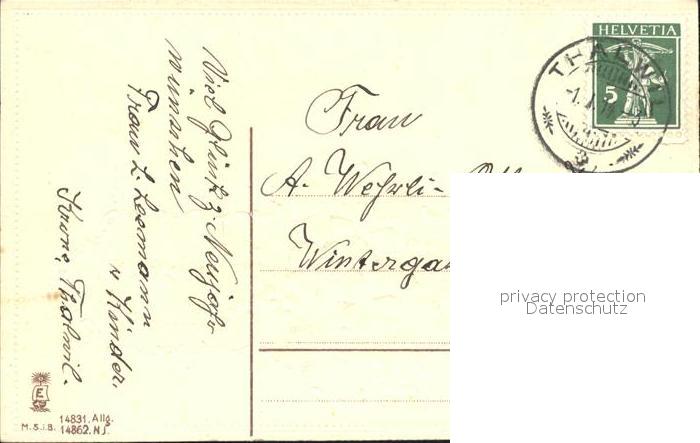 Viel Glück z. Neujahr
wünschen
Frau L. Leemann
u Kinder.
Krone, Thalwil.
HELVETIA
5
THALWIL
Frau
A. Wehrli-
Winterga
privacy protection
Datenschutz
E
M.S.i.B.
14831. Allg.
14862. NJ.